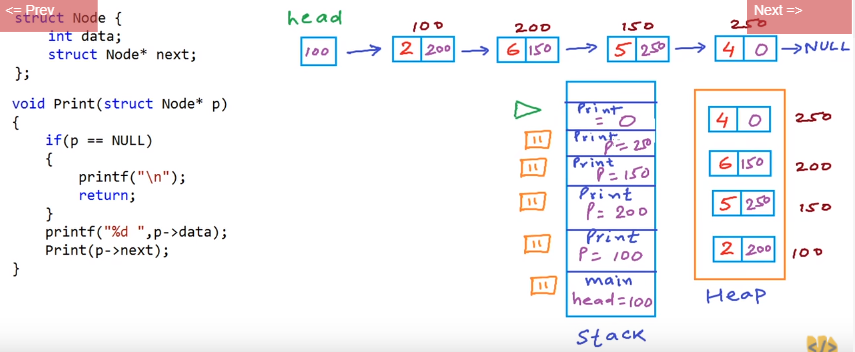 <= Prev
Next =>
struct Node {
int data;
struct Node* next;
};
void Print(struct Node* p)
{
if(p == NULL)
{
printf("\n");
return;
}
printf("%d ",p->data);
Print(p->next);
}
head
100
100
2 200
200
6 150
150
5 250
250
4 0
NULL
Print
= 0
Print
P= 250
Print
P= 150
Print
P= 200
Print
P= 100
main
head=100
Stack
4 0 250
6 150 200
5 250 150
2 200 100
Heap
</>